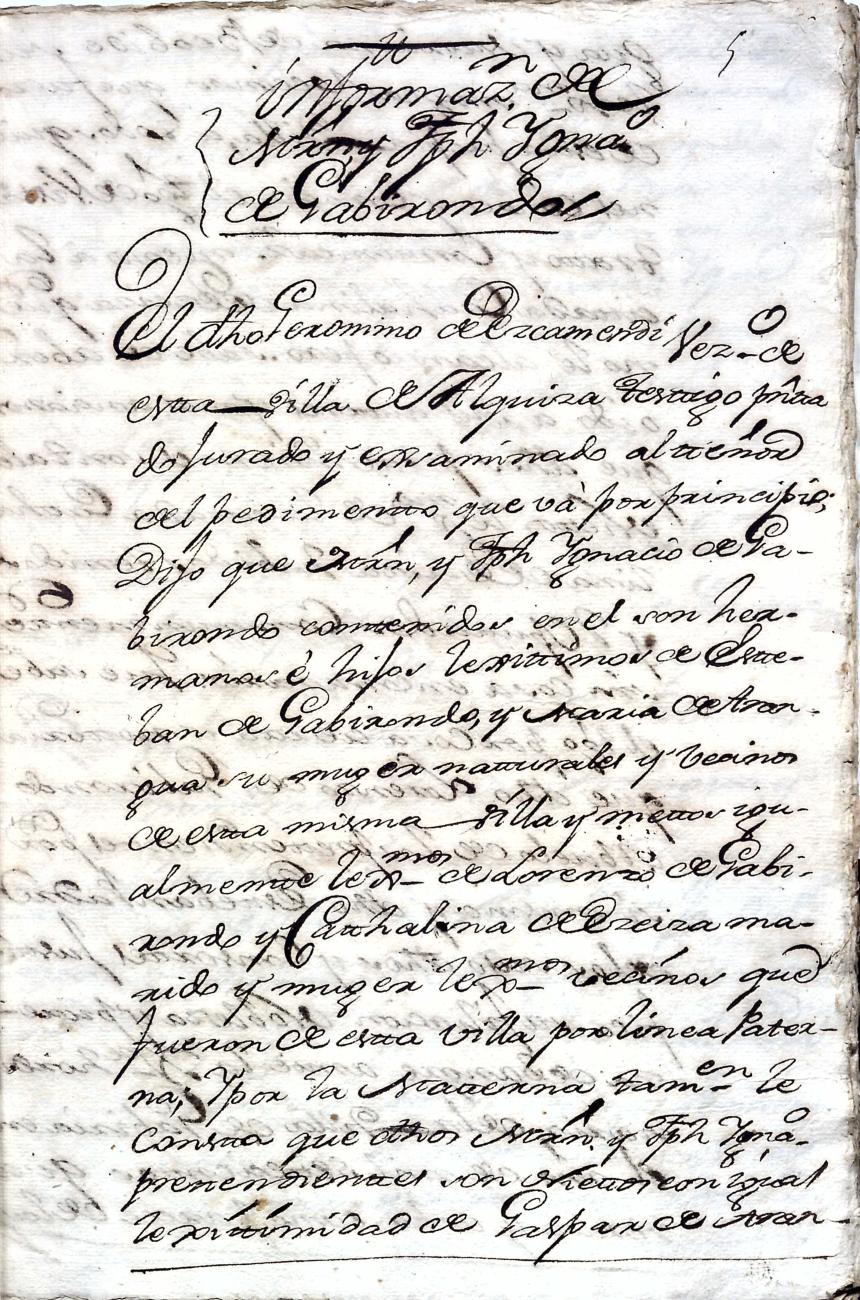 5
tt
informaz.n de
Mrn, y Jph Ygna.o
de Gabirondo
El dho Geronimo de Ercamendi Vez.o de
estta Villa de Alquiza testtigo pñtta
do jurado y exsaminado al tteñor
del pedimentto que và por principio;
Dijo que Mrn, y Jph Ygnacio de Ga-
birondo conttenidos en el son her-
manos è hijos lexittimos de Estte-
ban de Gabirondo, y Maria de Aran-
gua su muger natturales y vecinos
de estta misma Villa y niettos igu-
almentte lex.mos de Lorenzo de Gabi-
rondo y Catthalina de Ereiza ma-
rido y muger lex.mos vecinos que
fueron de estta villa por linea Pater-
na; Y por la Matterna tam.en le
constta que dhos Mrn. y Jph Ygna.o
prettendienttes son niettos con igual
lexittimidad de Gaspar de Aran-